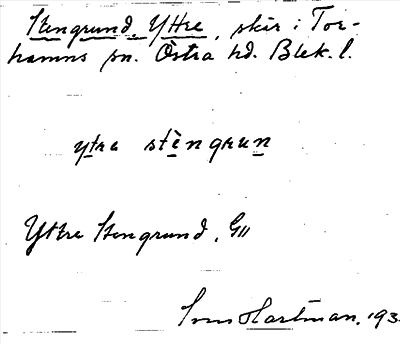 Stengrund, Yttre, skär i Tor-
hamns sn. Östra hd. Blek. l.
ytra stèngrun
Yttre Stengrund, G11
Sven Hartman. 193